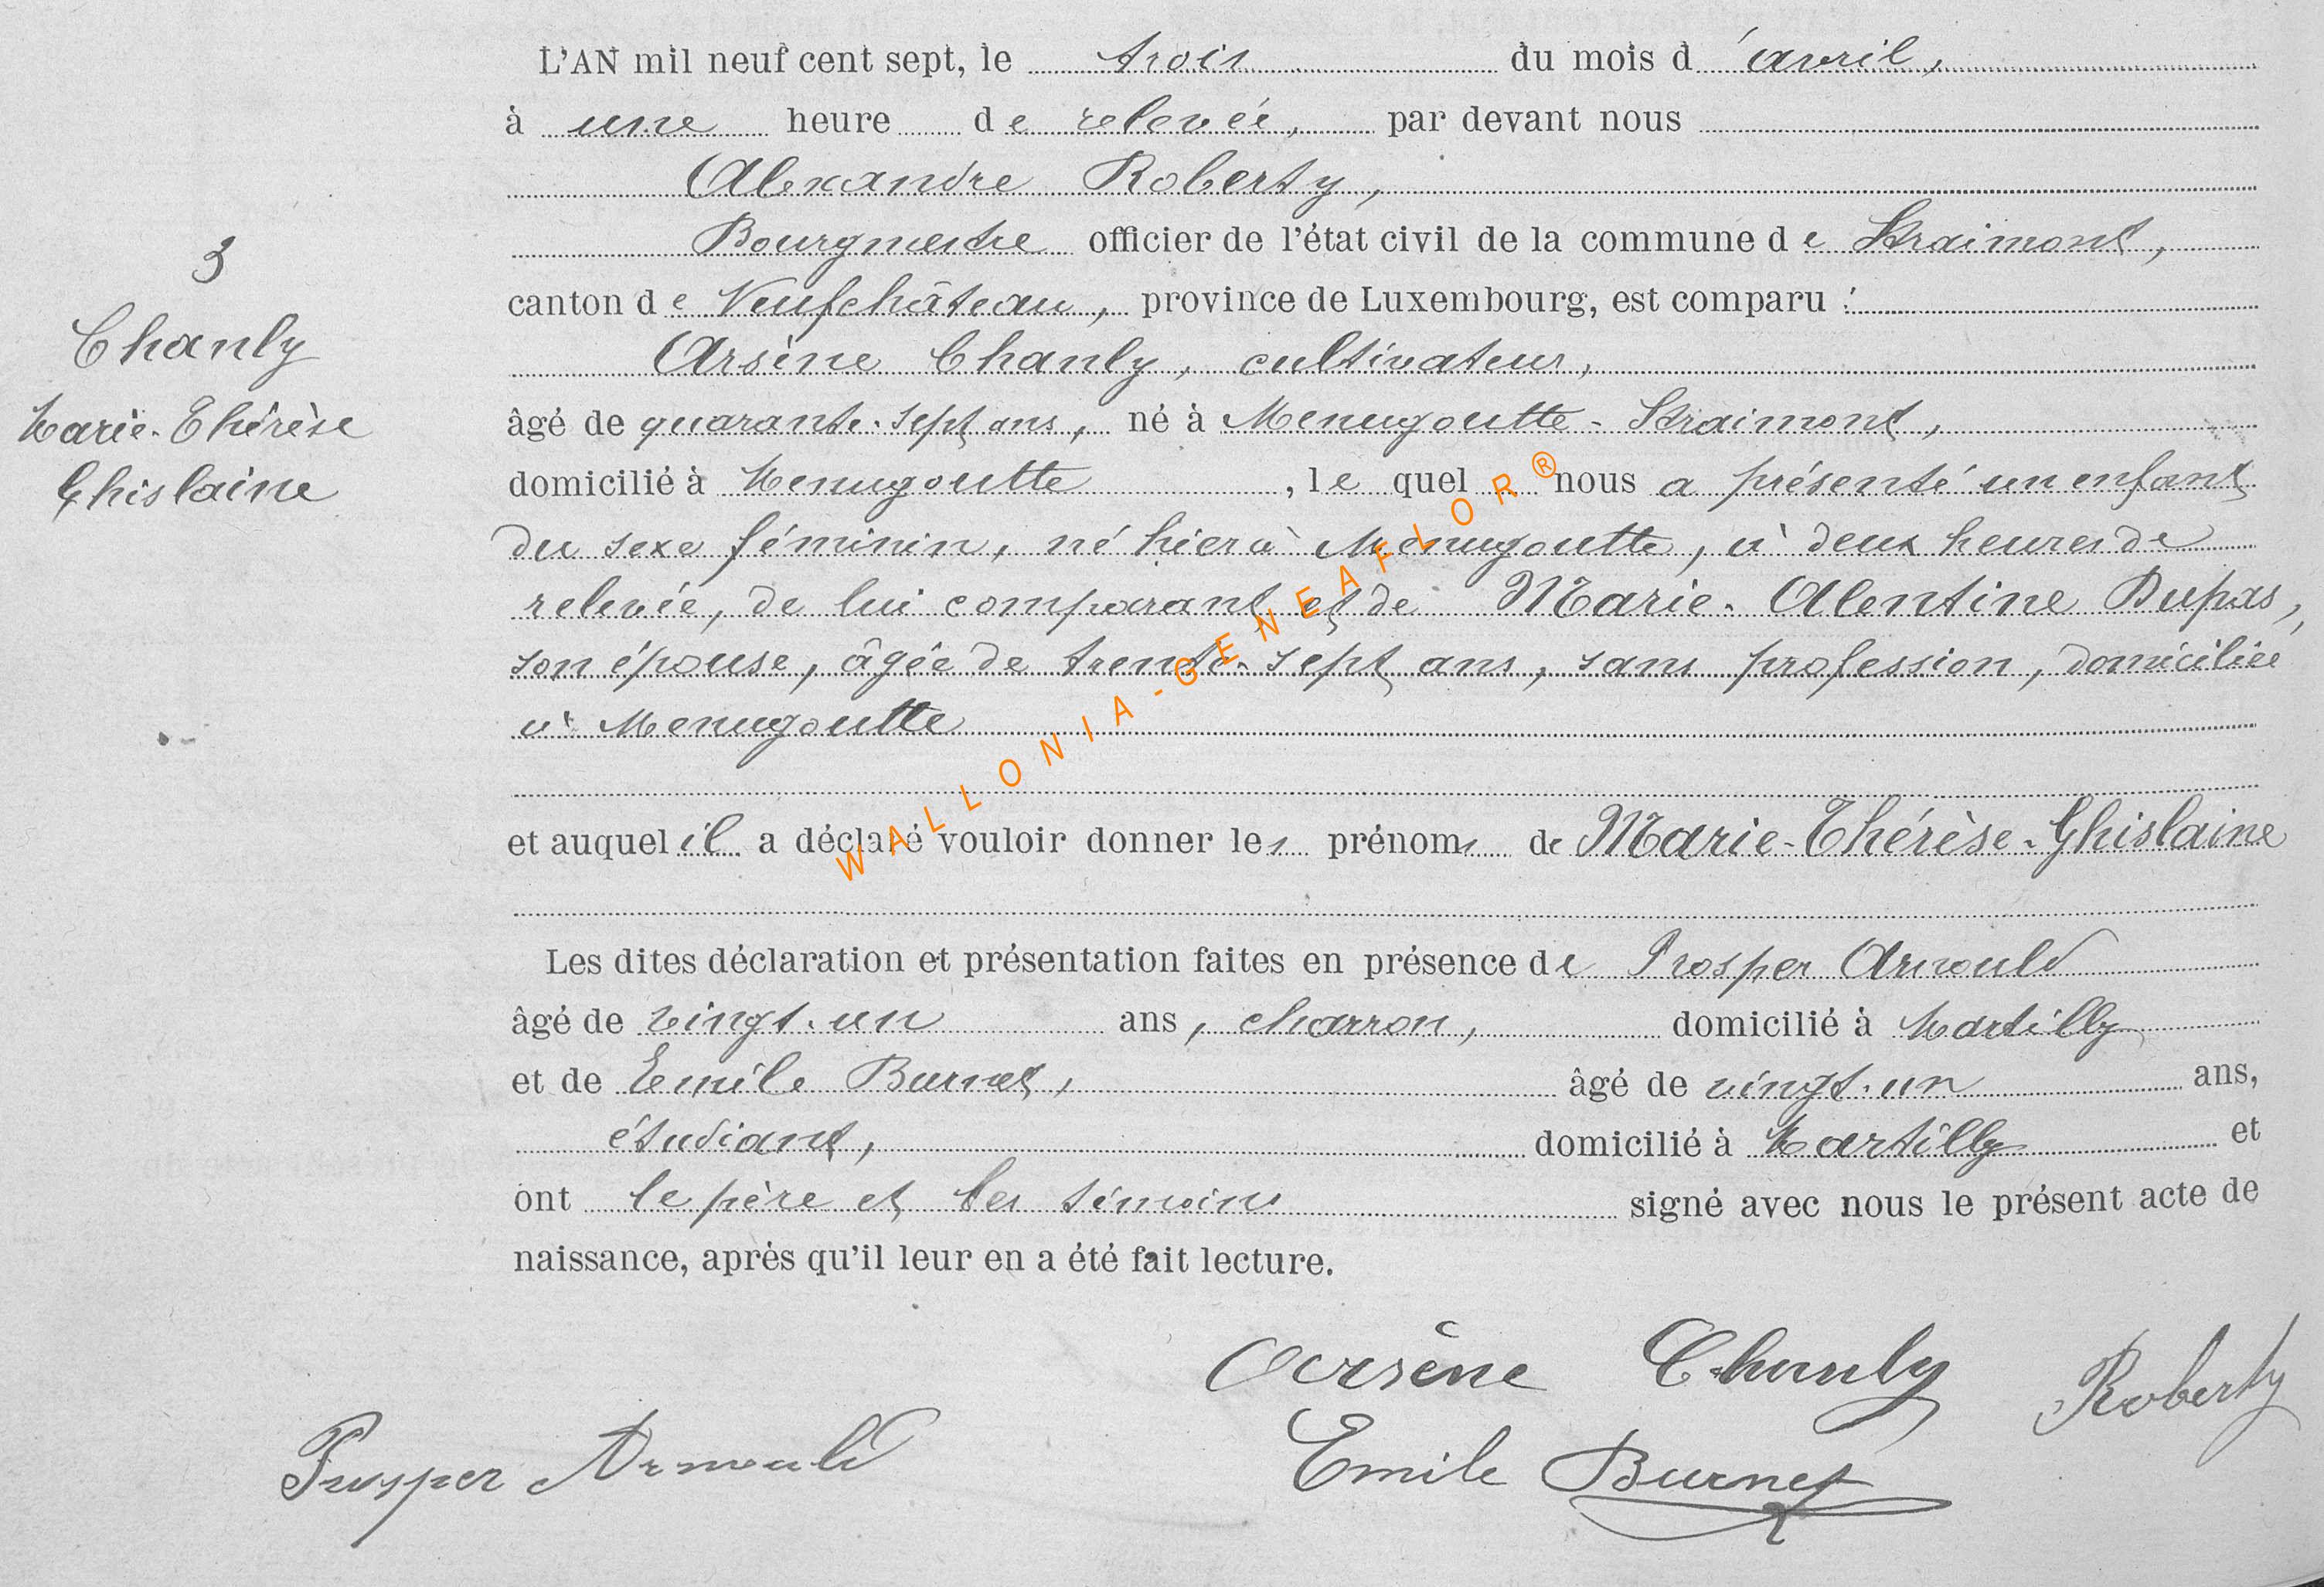 L'AN mil neuf cent sept, le trois du mois d'avril,
à une heure de relevée, par devant nous
Alexandre Roberty,
Bourgmestre officier de l'état civil de la commune de Straimont,
canton de Neufchâteau, province de Luxembourg, est comparu :
Arsène Chanly, cultivateur,
âgé de quarante-sept ans, né à Menugoutte-Straimont,
domicilié à Menugoutte, lequel nous a présenté un enfant
du sexe féminin, né hier à Menugoutte, à deux heures de
relevée, de lui comparant et de Marie-Alentine Dupas,
son épouse, âgée de trente-sept ans, sans profession, domiciliée
à Menugoutte
et auquel il a déclaré vouloir donner les prénoms de Marie-Thérèse-Ghislaine
Les dites déclaration et présentation faites en présence de Prosper Arnould
âgé de vingt-un ans, charron, domicilié à Martilly
et de Emile Burnet, âgé de vingt-un ans,
étudiant, domicilié à Martilly et
ont le père et les témoins signé avec nous le présent acte de
naissance, après qu'il leur en a été fait lecture.
3
Chanly
Marie-Thérèse
Ghislaine
Arsène Chanly
Roberty
Prosper Arnould
Emile Burnet
WALLONIA-GENEAFLOR®